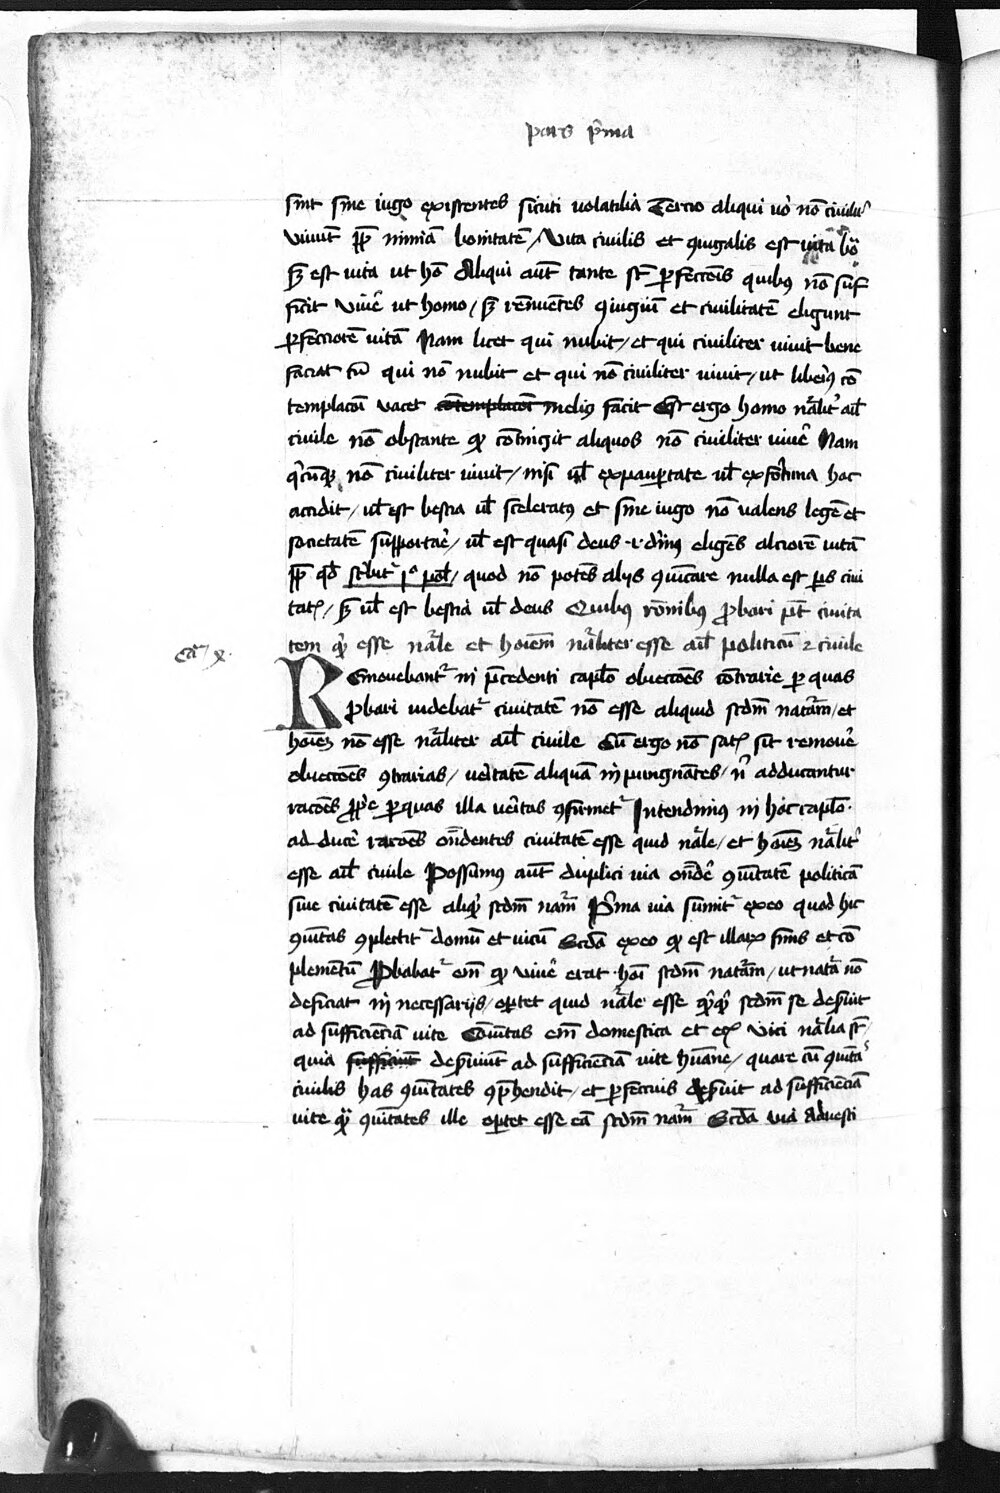 pars p̄ma
sint sine iugo existentes sicuti volatilia Tercio aliqui vo̾ nō ciuilit̾
viuūt ꝓpt̾ nimiā bonitatē / Vita ciuilis et ꝯiugalis est vita bō
sꝫ est vita ut hō Aliqui aūt tante sūt ꝑfectiōis quibus nō suf
ficit viuẽ ut homo / sꝫ renuentes ꝯiugiū et ciuilitatē eligunt
ꝑfectiorē vitā Nam licet qui nubit / et qui ciuiliter viuit bene
faciat tn̄ qui nō nubit et qui nō ciuiliter viuit / ut liberius cō
templacōi vacet contemplacōi melius facit Est ergo homo nāl̄it̾ aīl
ciuile nō obstante ꝙ contingit aliquos nō ciuiliter viuẽ Nam
q̄cūqꝫ nō ciuiliter viuit / nisi vl̄ ex paupertate vl̄ ex fortuna hoc
accidit / vl̄ est bestia vl̄ sceleratus et sine iugo nō valens legē et
societatē supportaẽ / vl̄ est quasi deus ·i· diuinus eligēs alciorē vitā
ꝓpt̾ qd̄ sc̄bit̾ pͦ pol̄ / quod nō potēs alijs ꝯicare nulla est ps ciui
tatꝭ / sꝫ vl̄ est bestia vl̄ deus Quibus rōnibus ꝓbari pt̄ ciuita
tem q̾ esse nāl̄e et hoīem nāl̄iter esse aīl politicū ⁊ ciuile
ca̾ / x ·
Remouebant̾ in p̄cedenti caplō obiectiōes contrarie ꝑ quas
ꝓbari videbat̾ ciuitatē nō esse aliquid scdm̄ naturā / et
hoīeꝫ nō esse nāl̄iter aīl ciuile Cū ergo nō satꝭ sit remouẽ
obiectiōes ꝯtrarias / veritatē aliquā inpungnātes / n̄ adducantur
racōes ꝓp̄e ꝑ quas illa veritas ꝯfirmet̾ Intendimus in hoc caplō ·
ad ducẽ racōes on̄dentes ciuitatē esse quid nāl̄e / et hoīeꝫ nāl̄it̾
esse aīl ciuile Possumus aūt duplici via on̄dẽ ꝯmūtatē politicā
siue ciuitatē esse aliq̾ scdm̄ nām̄ P̄ma via sumit̾ ex eo quod hec
ꝯmūtas ꝯplectit̾ domū et vicū Scd̄a ex eo ꝙ est illaꝝ finis et cō
plementū Probabat̾ em̄ ꝙ viuẽ erat hoī scdm̄ naturā / ut natā nō
deficiat in necessarijs / oportet quid nāl̄e esse q̾q̾ scdm̄ se deseruit
ad sufficienciā vite Cōmūtas em̄ domestica et eꝭ vici nāl̄ia sūt /
quia sufficiūt deseruiūt ad sufficienciā vite hūane / quare cū ꝯmūtas
ciuilis has ꝯmūtates ꝯp̄hendit / et ꝑfectius deseruit ad sufficienciā
vite q̾ ꝯmūtates ille oportet esse eā scdm̄ nām̄ Scd̄a via ad vesti